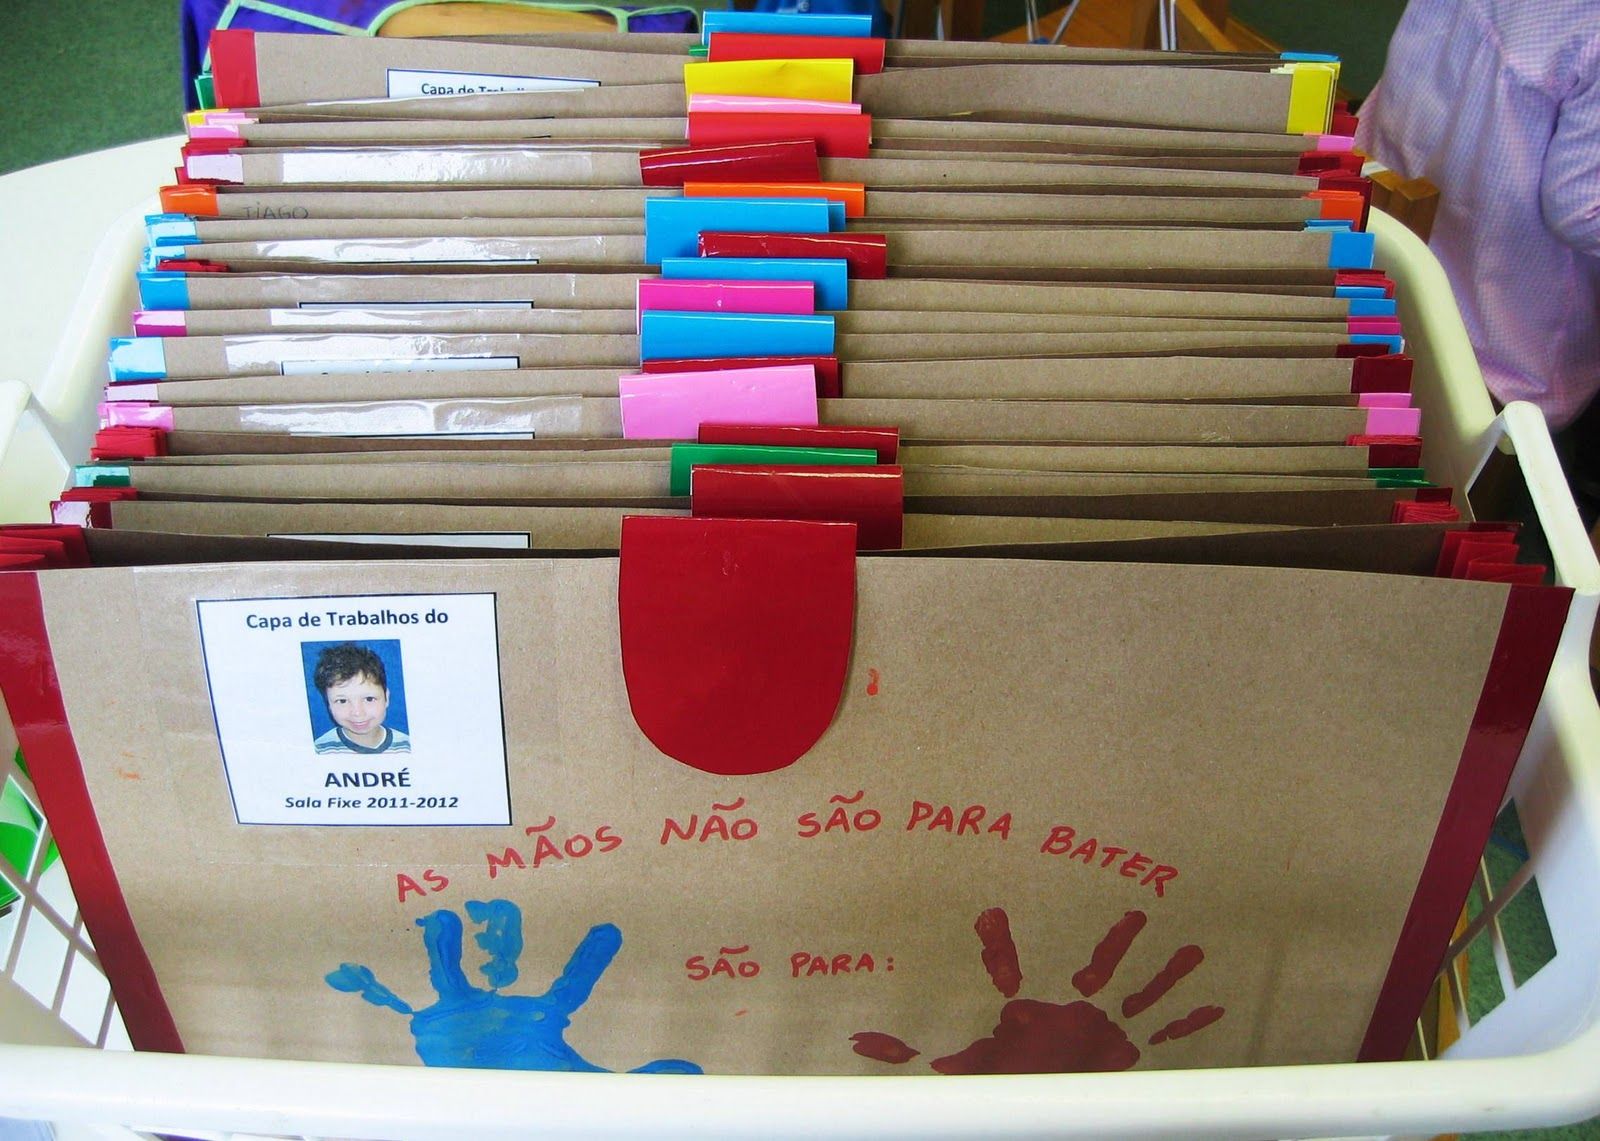 Capa de Trabalhos
TIAGO
Capa de Trabalhos do
ANDRÉ
Sala Fixe 2011-2012
AS MÃOS NÃO SÃO PARA BATER
SÃO PARA: